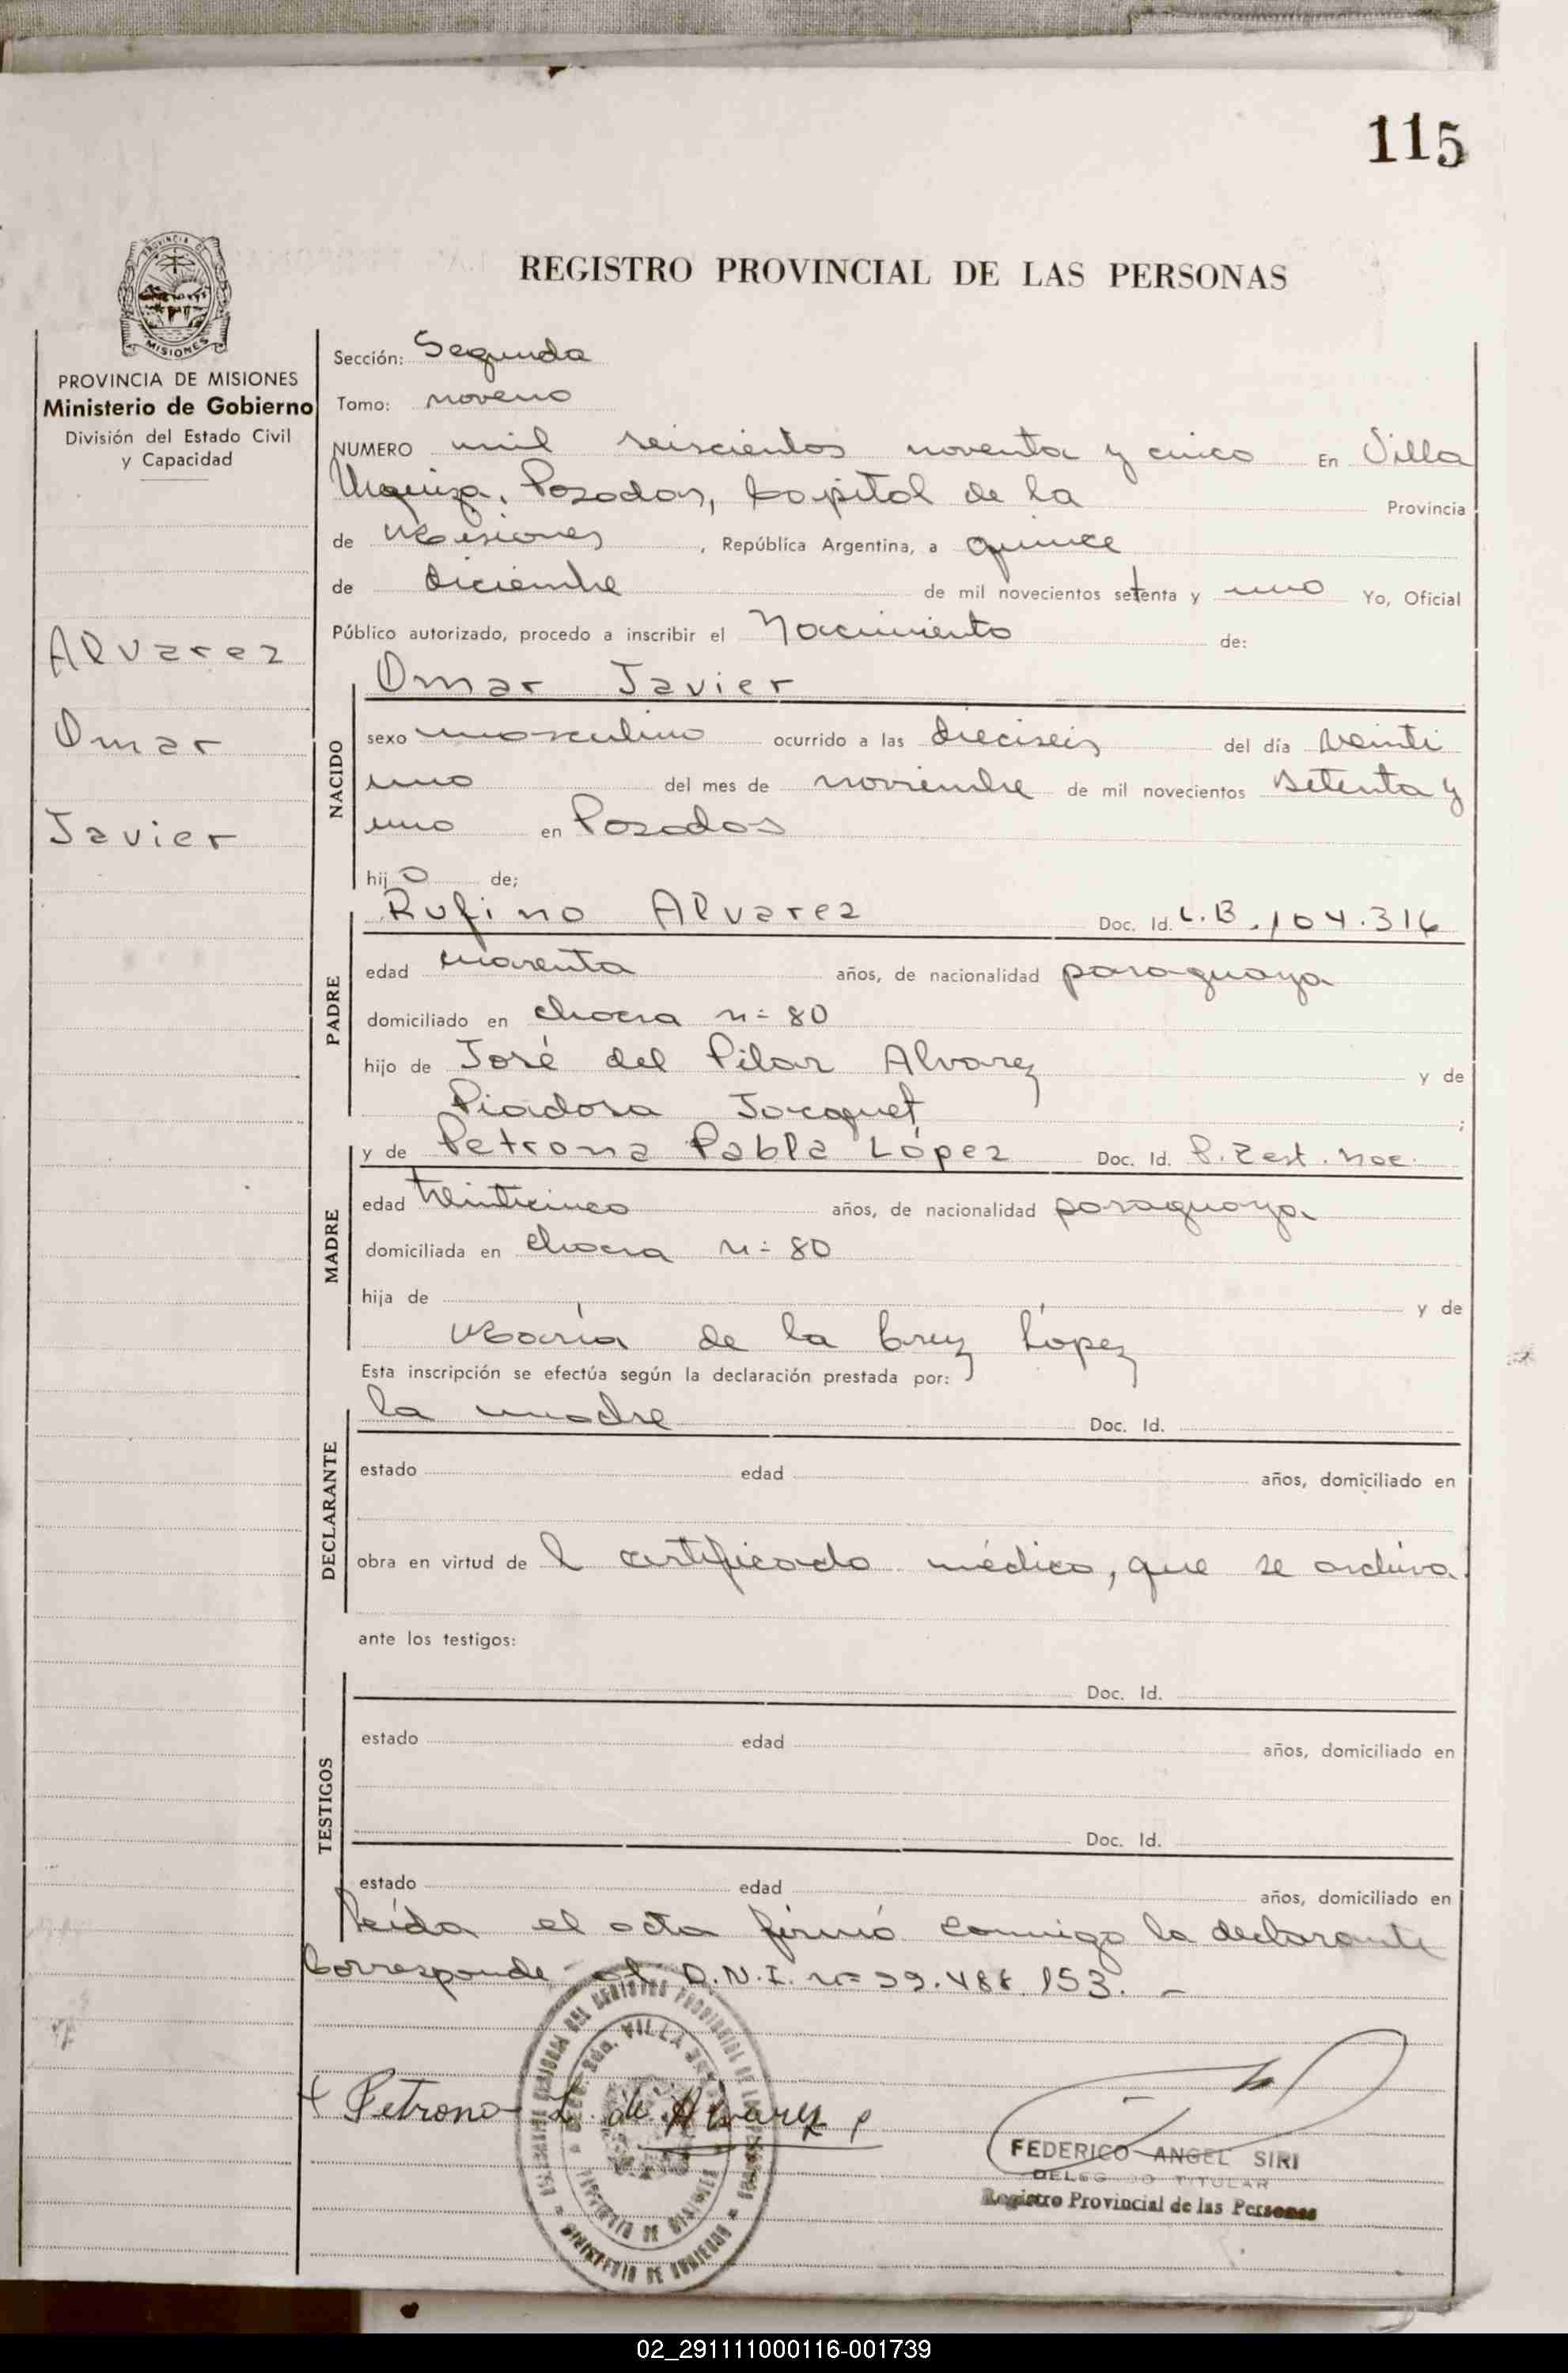 115
REGISTRO PROVINCIAL DE LAS PERSONAS
PROVINCIA DE MISIONES
Ministerio de Gobierno
División del Estado Civil
y Capacidad
Alvarez
Omar
Javier
Sección: Segunda
Tomo: noveno
NUMERO mil seiscientos noventa y cinco En Villa
Urquiza, Posadas, Capital de la Provincia
de Misiones, República Argentina, a quince
de diciembre de mil novecientos setenta y uno Yo, Oficial
Público autorizado, procedo a inscribir el Nacimiento de:
NACIDO
Omar Javier
sexo masculino ocurrido a las dieciseis del día veinti
uno del mes de noviembre de mil novecientos setenta y
uno en Posadas
hijo de;
PADRE
Rufino Alvarez Doc. Id. C.B. 104.316
edad cuarenta años, de nacionalidad paraguaya
domiciliado en chacra n= 80
hijo de José del Pilar Alvarez y de
Piadosa Jacquet;
MADRE
y de Petrona Pabla López Doc. Id. P. Test. Nac.
edad treinticinco años, de nacionalidad paraguaya
domiciliada en chacra n= 80
hija de y de
María de la Cruz López
Esta inscripción se efectúa según la declaración prestada por:
DECLARANTE
la madre Doc. Id.
estado edad años, domiciliado en
obra en virtud de l certificado médico, que se archiva.
ante los testigos:
TESTIGOS
Doc. Id.
estado edad años, domiciliado en
Doc. Id.
estado edad años, domiciliado en
Leída el acta firmó conmigo la declarante
Corresponde al D.N.I. n=
153. -
Petrona L. de Alvarez
FEDERICO ANGEL SIRI
DELEGADO TITULAR
Registro Provincial de las Personas
02_291111000116-001739